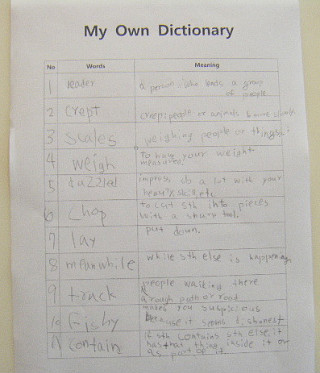 My Own Dictionary
No Words Meaning
1 leader a person who leads a group
of people
2 crept creep: people or animals
3 scales weighing people or things
4 weigh To your weight
measured
5 dazzled impress a lot with your
beauty, skill, etc
6 Chop to cut sth into pieces
with a sharp tool.
7 lay put down.
8 meanwhile while sth else is happening
9 track people walking there
a rough path or road
10 Fishy makes you suspicious
because it seems dishonest
11 contain if sth contains sth else it
has that thing inside it or
as part of it.